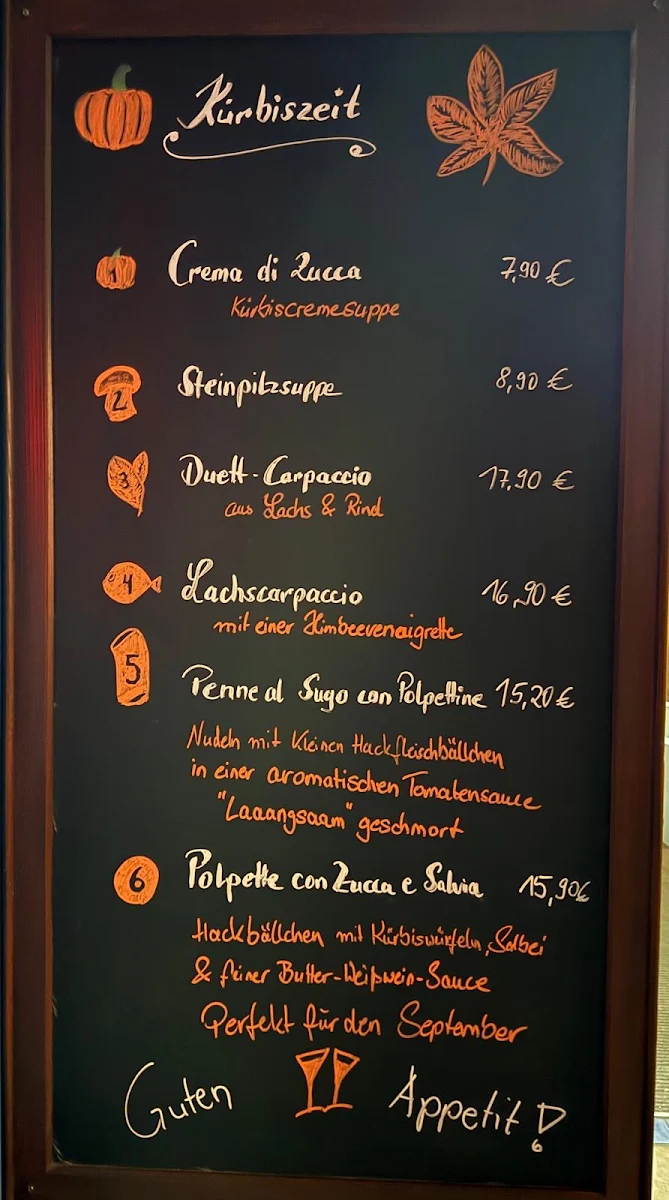 Kürbiszeit
1 Crema di Zucca 7,90 €
Kürbiscremesuppe
2 Steinpilzsuppe 8,90 €
3 Duett-Carpaccio 17,90 €
aus Lachs & Rind
4 Lachscarpaccio 16,90 €
mit einer Himbeevenaigrette
5 Penne al Sugo con Polpettine 15,20 €
Nudeln mit kleinen Hackfleischbällchen
in einer aromatischen Tomatensauce
"Laaangsaam" geschmort
6 Polpette con Zucca e Salvia 15,90€
Hackbällchen mit Kürbiswürfeln, Salbei
& feiner Butter-Weißwein-Sauce
Perfekt für den September
Guten Appetit!